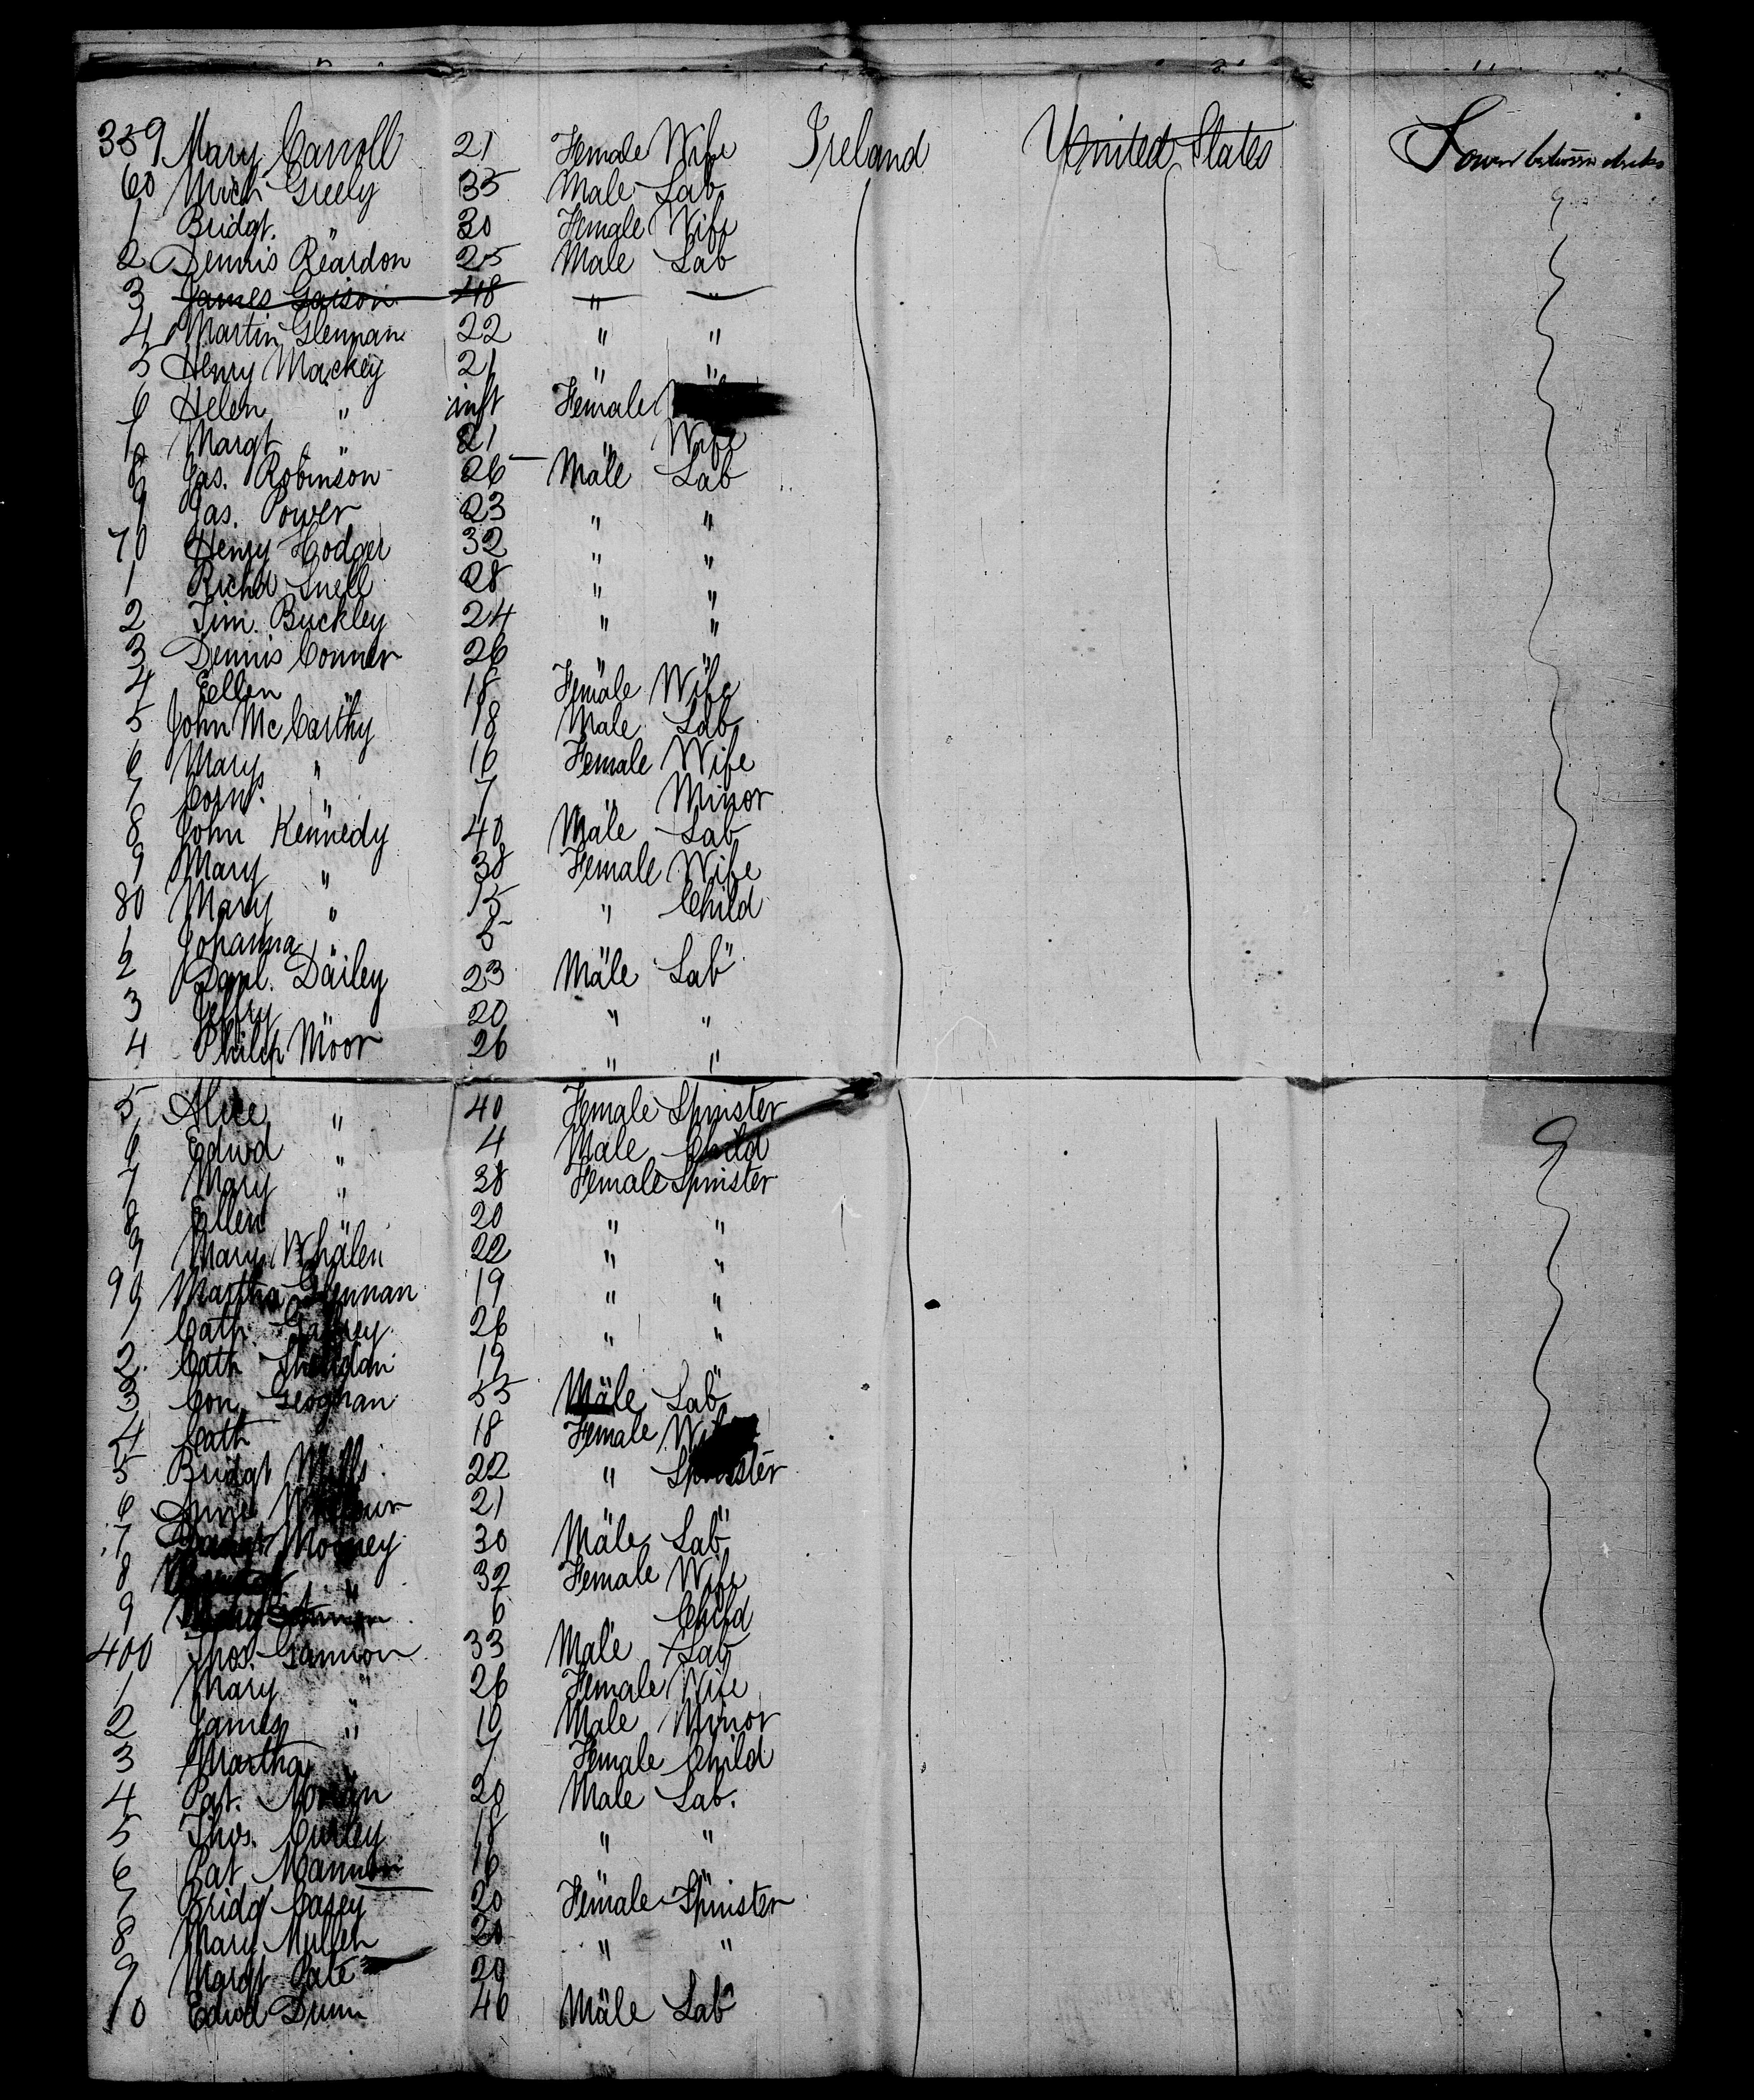 359 Mary Carroll 21 Female Wife Ireland United States Lower between decks
60 Mich Greely 35 Male Lab
1 Bridgt. " 30 Female Wife
2 Dennis Reardon 25 Male Lab
3 James Gaison 48 " "
4 Martin Glennan 22 " "
5 Henry Mackey 21 " "
6 Helen " inft Female
7 Margt " 21 " Wife
8 Jas. Robinson 26 Male Lab
9 Jas. Power 23 " "
70 Henry Hodger 32 " "
1 Richd Snell 28 " "
2 Tim. Buckley 24 " "
3 Dennis Conner 26 " "
4 Eellen " 18 Female Wife
5 John McCarthy 18 Male Lab
6 Mary " 16 Female Wife
7 Corns. " 7 " Minor
8 John Kennedy 40 Male Lab
9 Mary " 38 Female Wife
80 Mary " 15 " Child
1 Johanna " 8 " "
2 Danl. Dailey 23 Male Lab
3 Jeffry " 20 " "
4 Philip Moor 26 " "
5 Alice " 40 Female Spinster
6 Edwd " 4 Male Child
7 Mary " 38 Female Spinster
8 Ellen " 20 " "
9 Mary Whalen 22 " "
90 Martha Glennan 19 " "
1 Cath. Gaffney 26 " "
2 Cath Sheridan 19 " "
3 Con. Geoghan 55 Male Lab
4 Cath 18 Female
5 Bridgt Mills 22 " Spinster
6 21 " "
7 Mooney 30 Male Lab
8 " 32 Female Wife
9 6 " Child
400 Thos. Gannon 33 Male Lab
1 Mary " 26 Female Wife
2 James " 10 Male Minor
3 Martha " 7 Female Child
4 Pat. Moran 20 Male Lab.
5 Thos. Curley 18 " "
6 Pat Mannion 16 " "
7 Bridgt Casey 20 Female Spinster
8 Mary Mullen 20 " "
9 Margt Pate 20 " "
10 Edwd Dunn 40 Male Lab